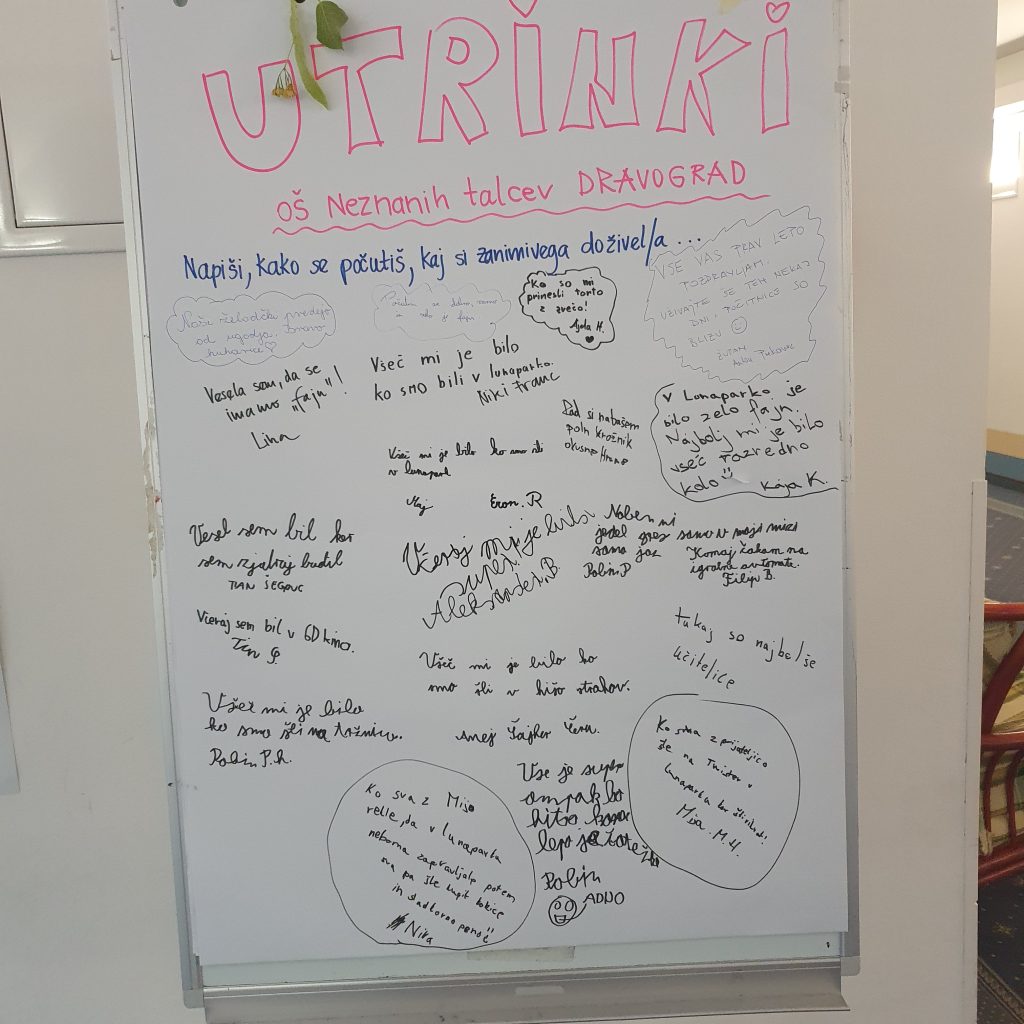 UTRINKI
OŠ Neznanih talcev DRAVOGRAD
Napiši, kako se počutiš, kaj si zanimivega doživel/a ...
Naši želodčki predejo
od ugodja. Bravo
kuharice
Počutim se dobro, samo
Ko so mi
prinesli torto
z svečo!
Ajda H.
VSE VAS PRAV LEPO
POZDRAVLJAM.
UŽIVAJTE ŠE TEH NEKAJ
DNI, POČITNICE SO
BLIZU
Vesela sem, da se
imamo "fajn"!
Lina
Všeč mi je bilo
ko smo bili v lunaparko.
Niki Franc
Rad si nabašem
poln krožnik
okusne hrane
V Lunaparko je
bilo zelo fajn.
Najbolj mi je bilo
všeč razredno
kolo
Kaja K.
Všeč mi je bilo ko smo šli
v lunapark
Maj
Eron. R
Vesel sem bil ker
sem zjutraj budil
TIAN ŠEGOVC
Včeraj mi je bilo
super.
Aleksander. B.
Noben ni
jedel grez samo v moji mizi
samo jaz
Robin. P
Komaj čakam na
igralne avtomate.
Filip B.
Včeraj sem bil v 6D kino.
Tin G.
tukaj so najbolše
učitelice
Všeč mi je bilo ko
smo šli v hišo strahov.
Anej Šajher
Všeč mi je bilo
ko smo šli na tržnico.
Robin P.h.
Ko sva z prijateljico
šle na Twister v
lunaparku
Mija. M. H.
Vse je super
ampak bo
hitro konec
lepo je
Robin
ADNO
Ko sva z Mijo
rekle, da v lunaparku
nebomo zapravljale potem
sva pa šle kupit kokice
in sladkorno peno
Nika